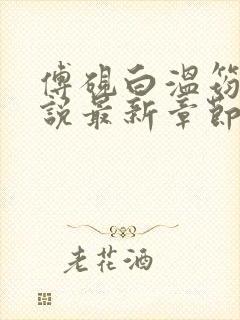 傅砚白温筠
説最新章節
老花酒